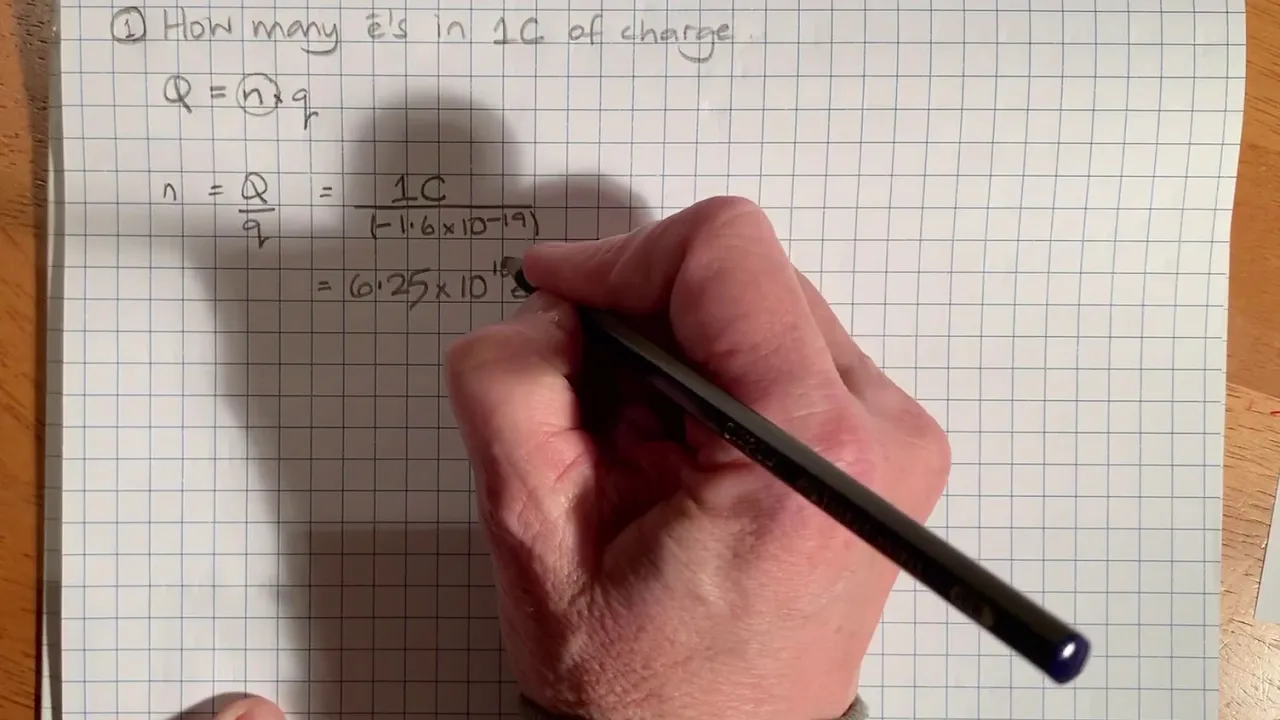 ① How many ē's in 1C of charge.
Q = n × q
n = Q/q = 1C/(-1.6×10⁻¹⁹)
= 6.25×10¹⁸